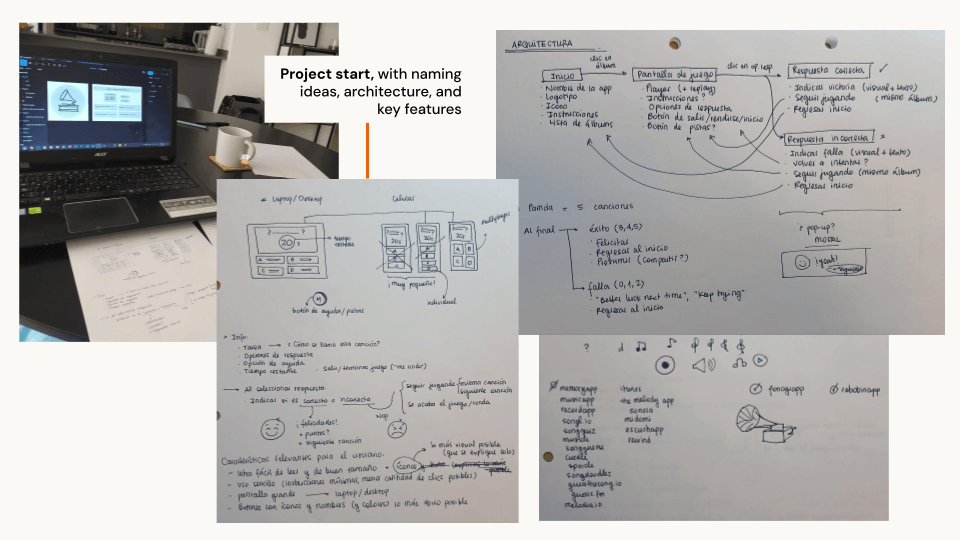 Project start, with naming
ideas, architecture, and
key features
ARQUITECTURA
clic en
álbum
clic en op. resp.
Inicio
· Nombre de la app
· Logotipo
· Icono
· Instrucciones
· Lista de álbums
Pantalla de juego
· Player (+ replay)
· Instrucciones?
· Opciones de respuesta
· Botón de salir/rendirse/inicio
· Botón de pistas?
Respuesta correcta ✓
· Indicar victoria (visual + texto)
· Seguir jugando (mismo álbum)
· Regresar inicio
Respuesta incorrecta x
· Indicar falla (visual + texto)
· Volver a intentar?
· Seguir jugando (mismo álbum)
· Regresar inicio
Partida = 5 canciones
Al final
éxito (3,4,5)
· Felicitar
· Regresar al inicio
· (compartir?)
falla (0,1,2)
· "Better luck next time", "Keep trying"
· Regresar al inicio
¿pop-up?
MODAL
¡yeah!
Laptop/Desktop
Celular
20s
tiempo
A
B
C
D
20s
20s
20s
A B
C D
multiplayer
¡muy pequeño!
individual
botón de ayuda/pistas
* Info:
· Tarea → ¿Cómo se llama esta canción?
· Opciones de respuesta
· Opción de ayuda
· Tiempo restante
· Salir/terminar juego ("me rindo")
→ Al seleccionar respuesta
· Indicar si es correcta o incorrecta
seguir jugando
misma canción
siguiente canción
se acaba el juego/ronda
¡felicidades!
+ puntos?
+ siguiente canción
Características relevantes para el usuario
lo más visual posible
(que se explique solo)
- letra fácil de leer y de buen tamaño + íconos
- uso sencillo (instrucciones mínimas, menor cantidad de clics posibles)
- pantalla grande → laptop/desktop
- Botones con íconos y nombres (y colores) lo más obvio posible
?
memoryapp
musicapp
recordapp
songl.io
songquiz
musicle
songguess
cuecle
songdoodles
guessthesong.io
guess.fm
melodia.io
itunes
the melody app
sonora
midomi
escuchapp
rewind
fonoguapp
robotinapp